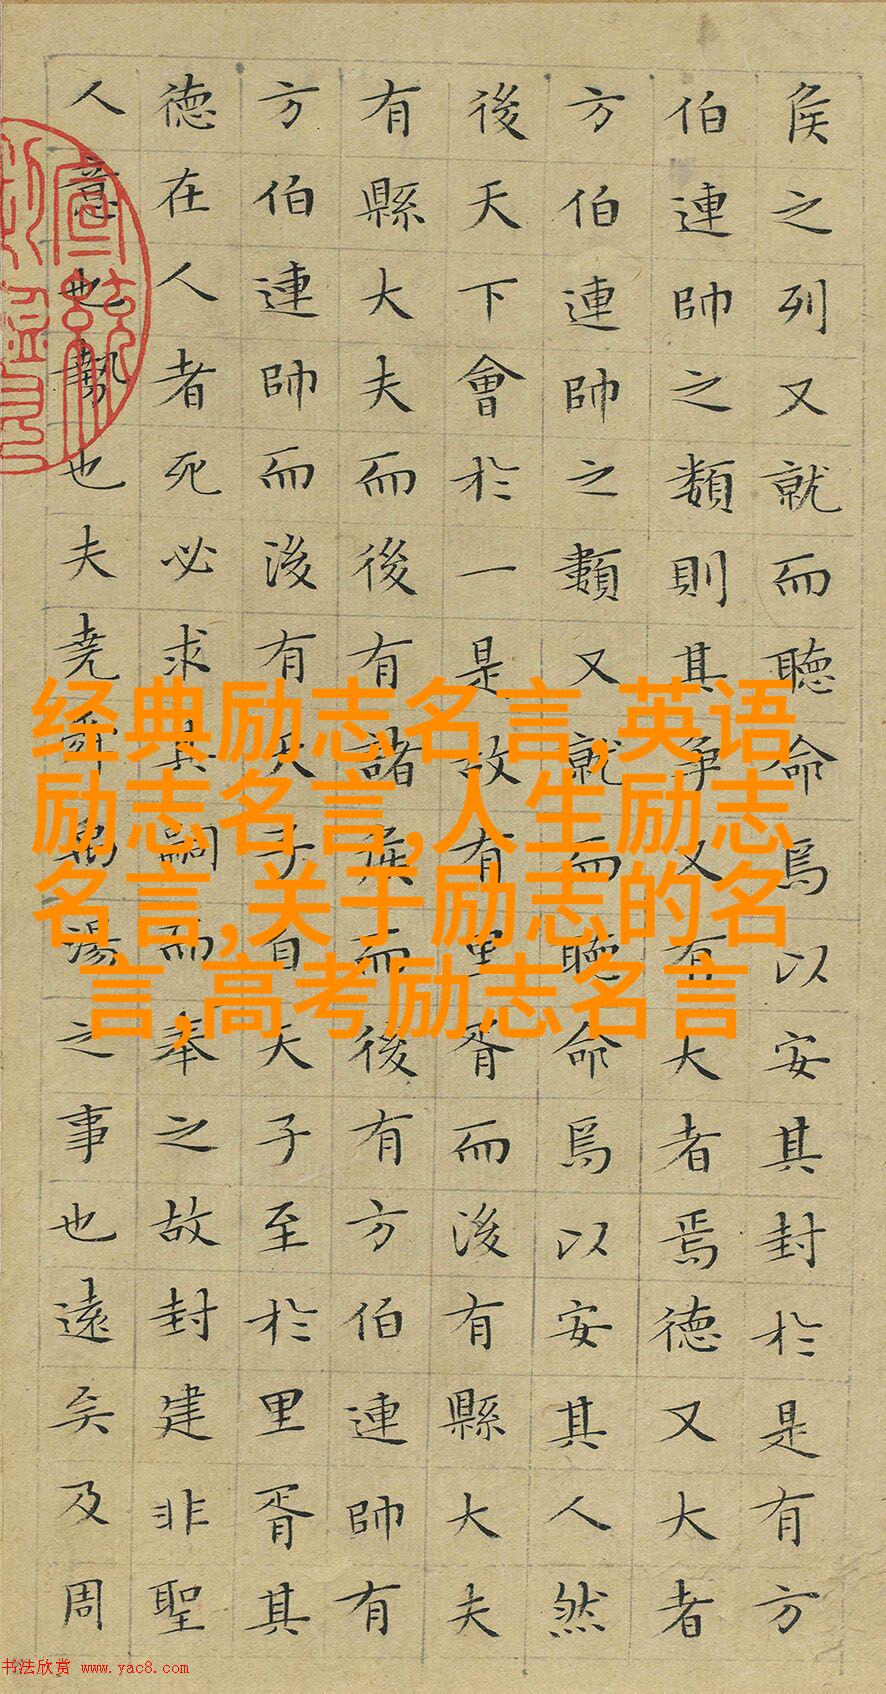 侯之列又就而聽命焉以安其封於是有方
伯連帥之類則其爭又有大者焉德又大者
方伯連帥之類又就而聽命焉以安其人然
後天下會於一是故有里胥而後有縣大夫
有縣大夫而後有諸侯而後有方伯連帥有
方伯連帥而後有天子自天子至於里胥其
德在人者死必求其嗣而奉之故封建非聖
人意也勢也夫堯舜禹湯之事也遠矣及周
经典励志名言,英语
励志名言,人生励志
名言,关于励志的名
言,高考励志名言
书法欣赏 www.yac8.com